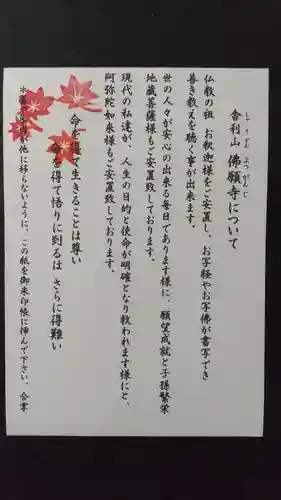 しゃりざん ぶつがんじ
舎利山 佛願寺について
仏教の祖 お釈迦様をご安置し、お写経やお写佛が書写でき
善き教えを聴く事が出来ます。
世の人々が安心の出来る毎日であります様に、願望成就と子孫繁栄
地蔵菩薩様もご安置致しております。
現代の私達が、人生の目的と使命が明確となり救われます様にと、
阿弥陀如来様もご安置致しております。
命を得て生きることは尊い
命を得て悟りに到るは さらに得難い
に他に移らないように、この紙を御朱印帳に挿んで下さい。 合掌